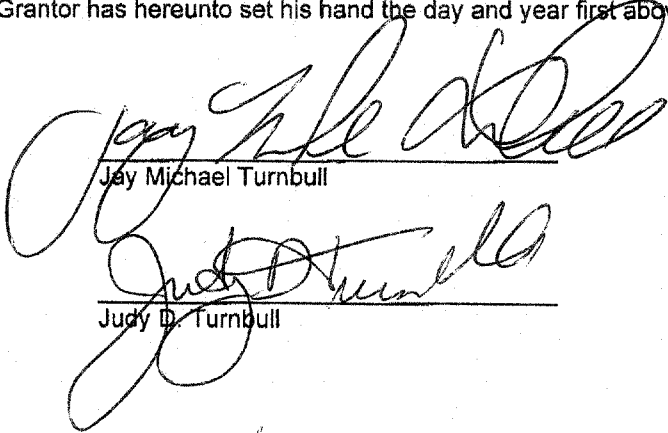 Grantor has hereunto set his hand the day and year first abo
Jay
Jay Michael Turnbull
Judy D Turnbull
Judy D. Turnbull